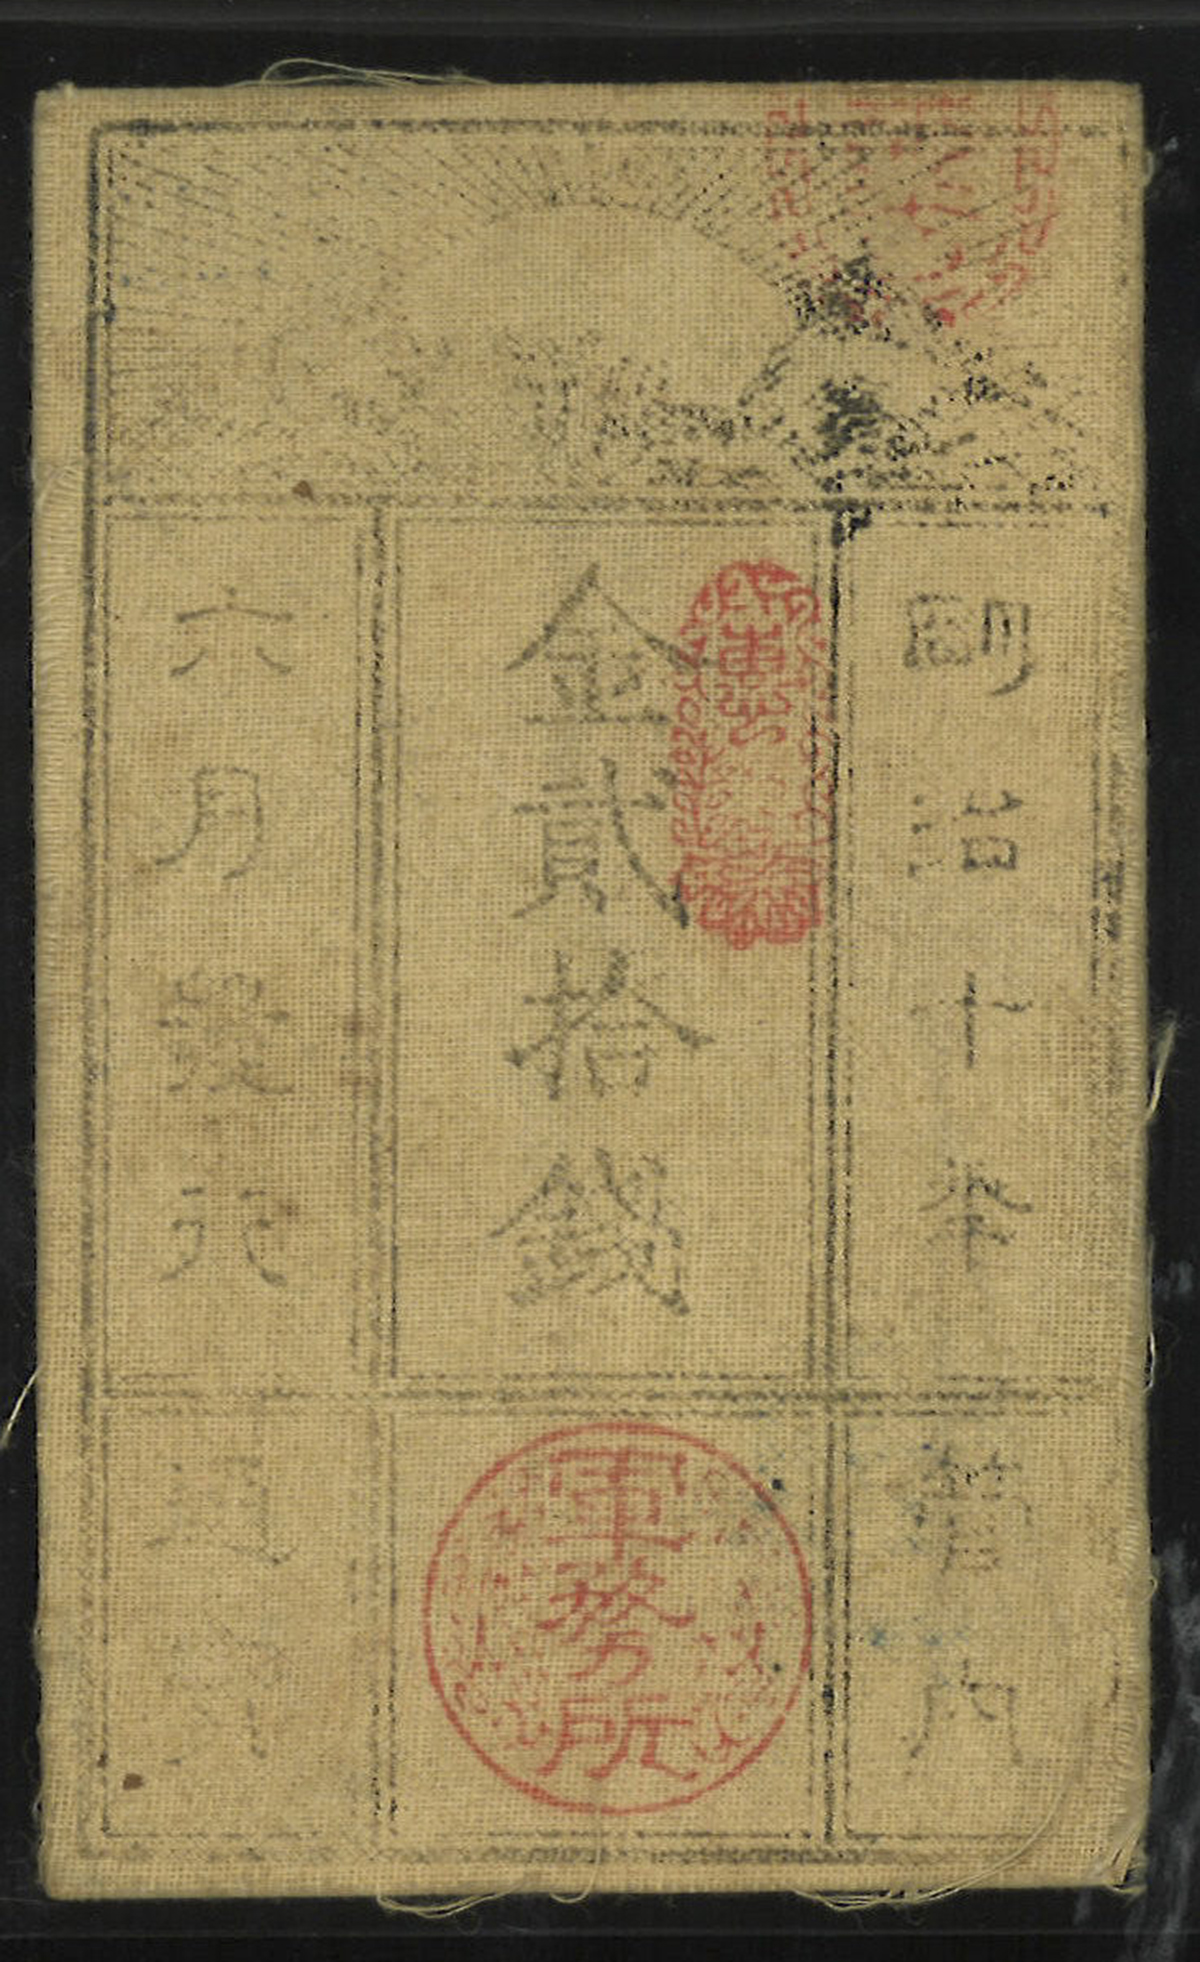 朙治十年
金貳拾錢
六月發行
管内
軍務所
通用